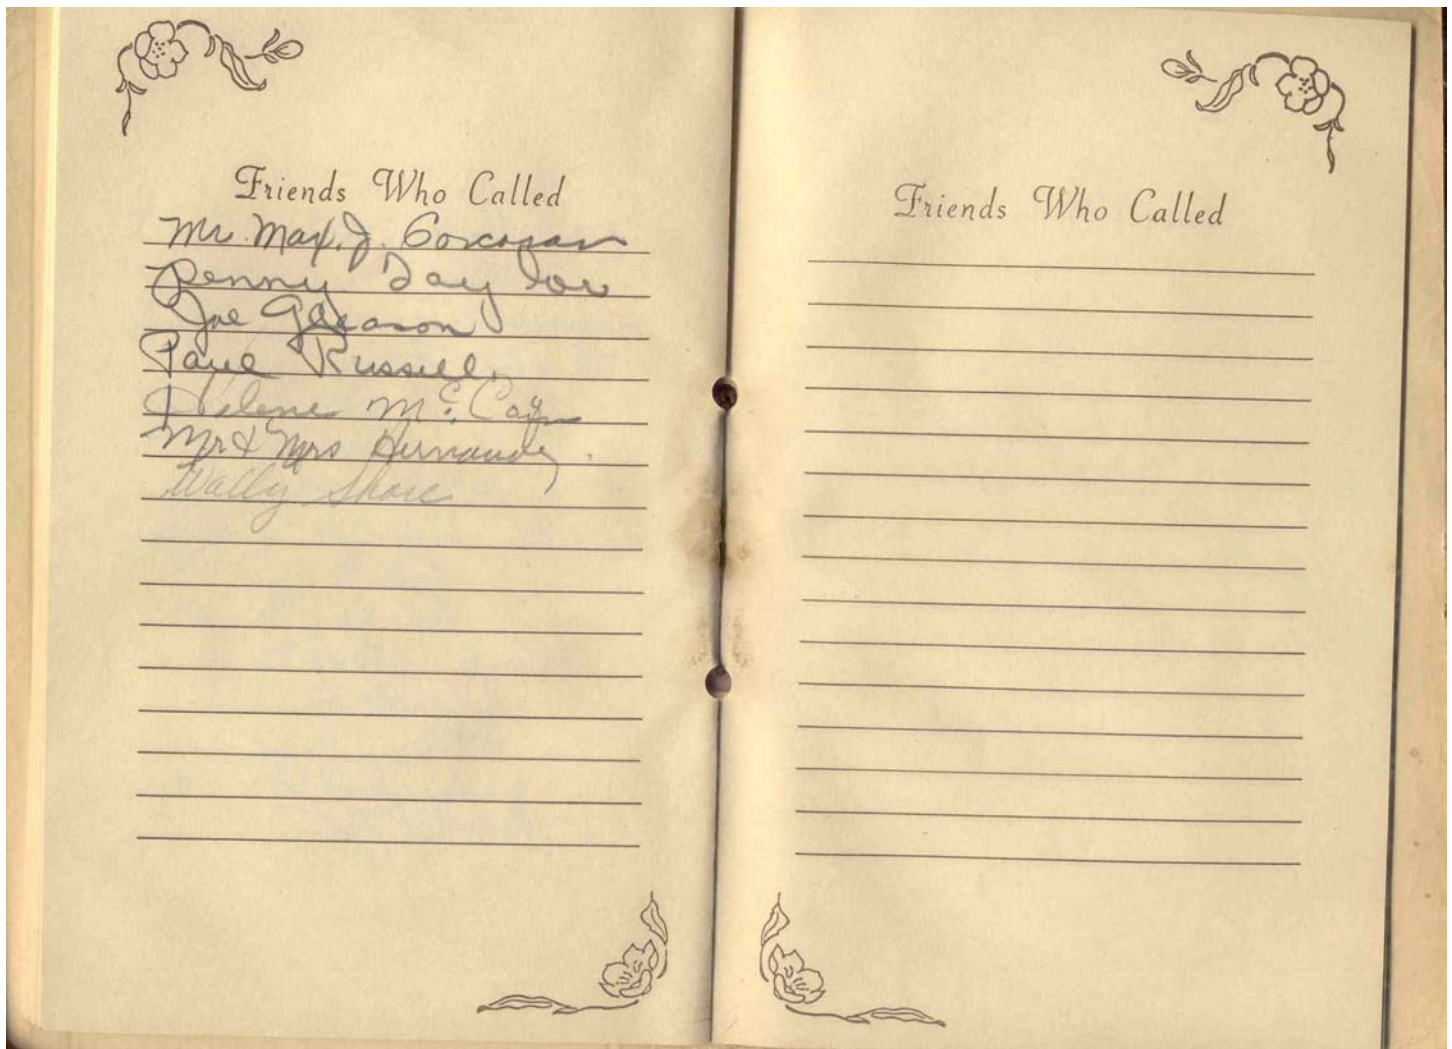 Friends Who Called
Mr. Max. J. Corcoran
Penny Taylor
Joe Gleason
Paul Russell.
Helene Mc
Mr & Mrs Hernandez
Wally Shore
Friends Who Called